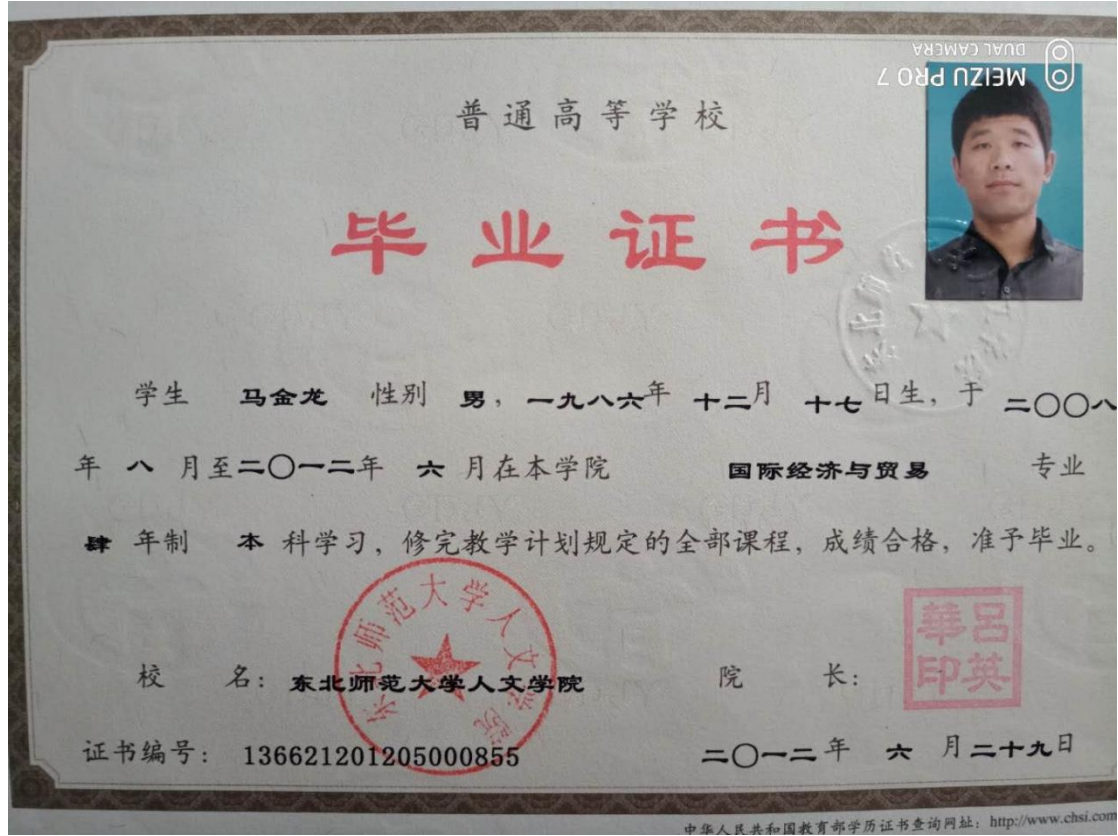 MEIZU PRO 7
DUAL CAMERA
普通高等学校
毕业证书
学生 马金龙 性别 男，一九八六年 十二月 十七日生，于 二〇〇八
年 八 月至二〇一二年 六 月在本学院 国际经济与贸易 专业
肆 年制 本 科学习，修完教学计划规定的全部课程，成绩合格，准予毕业。
东北师范大学人文学院
吕英華印
校 名：东北师范大学人文学院 院 长：
证书编号：136621201205000855 二〇一二年 六 月二十九日
中华人民共和国教育部学历证书查询网址：http://www.chsi.com